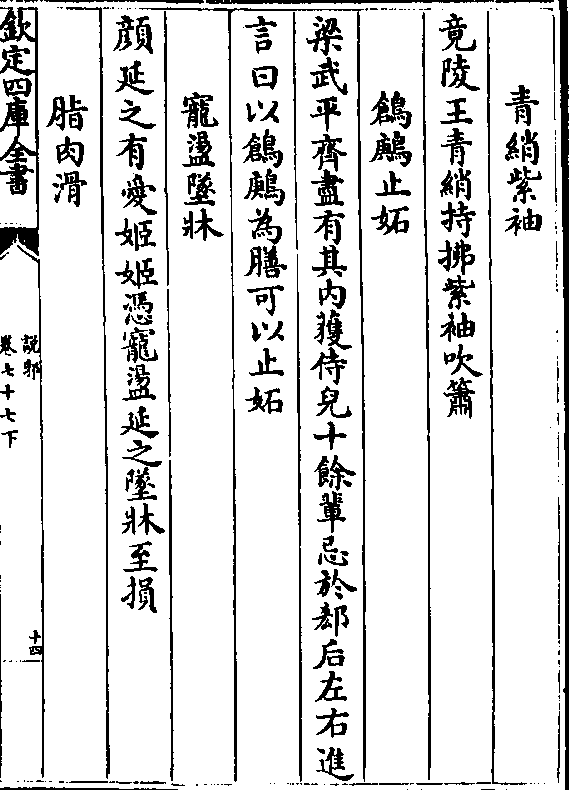 青綃紫袖
竟陵王青綃持拂紫袖吹簫
鶬鶊止妬
梁武平齊盡有其内獲侍兒十餘輩忌於郗后左右進
言曰以鶬鶊為膳可以止妬
寵盪墜牀
顔延之有愛姬姬憑寵盪延之墜牀至損
脂肉滑
欽定四庫全書
説郛
卷七十七下
十四